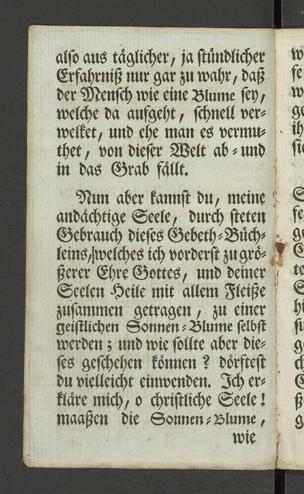 also aus täglicher, ja stündlicher
Erfahrniß nur gar zu wahr, daß
der Mensch wie eine Blume sey,
welche da aufgeht, schnell ver-
welket, und ehe man es vermu-
thet, von dieser Welt ab- und
in das Grab fällt.
Nun aber kannst du, meine
andächtige Seele, durch steten
Gebrauch dieses Gebeth-Büch-
leins, welches ich vorderst zu grö-
ßerer Ehre Gottes, und deiner
Seelen Heile mit allem Fleiße
zusammen getragen, zu einer
geistlichen Sonnen-Blume selbst
werden; und wie sollte aber die-
ses geschehen können? dörftest
du vielleicht einwenden. Ich er-
kläre mich, o christliche Seele!
maaßen die Sonnen-Blume,
wie